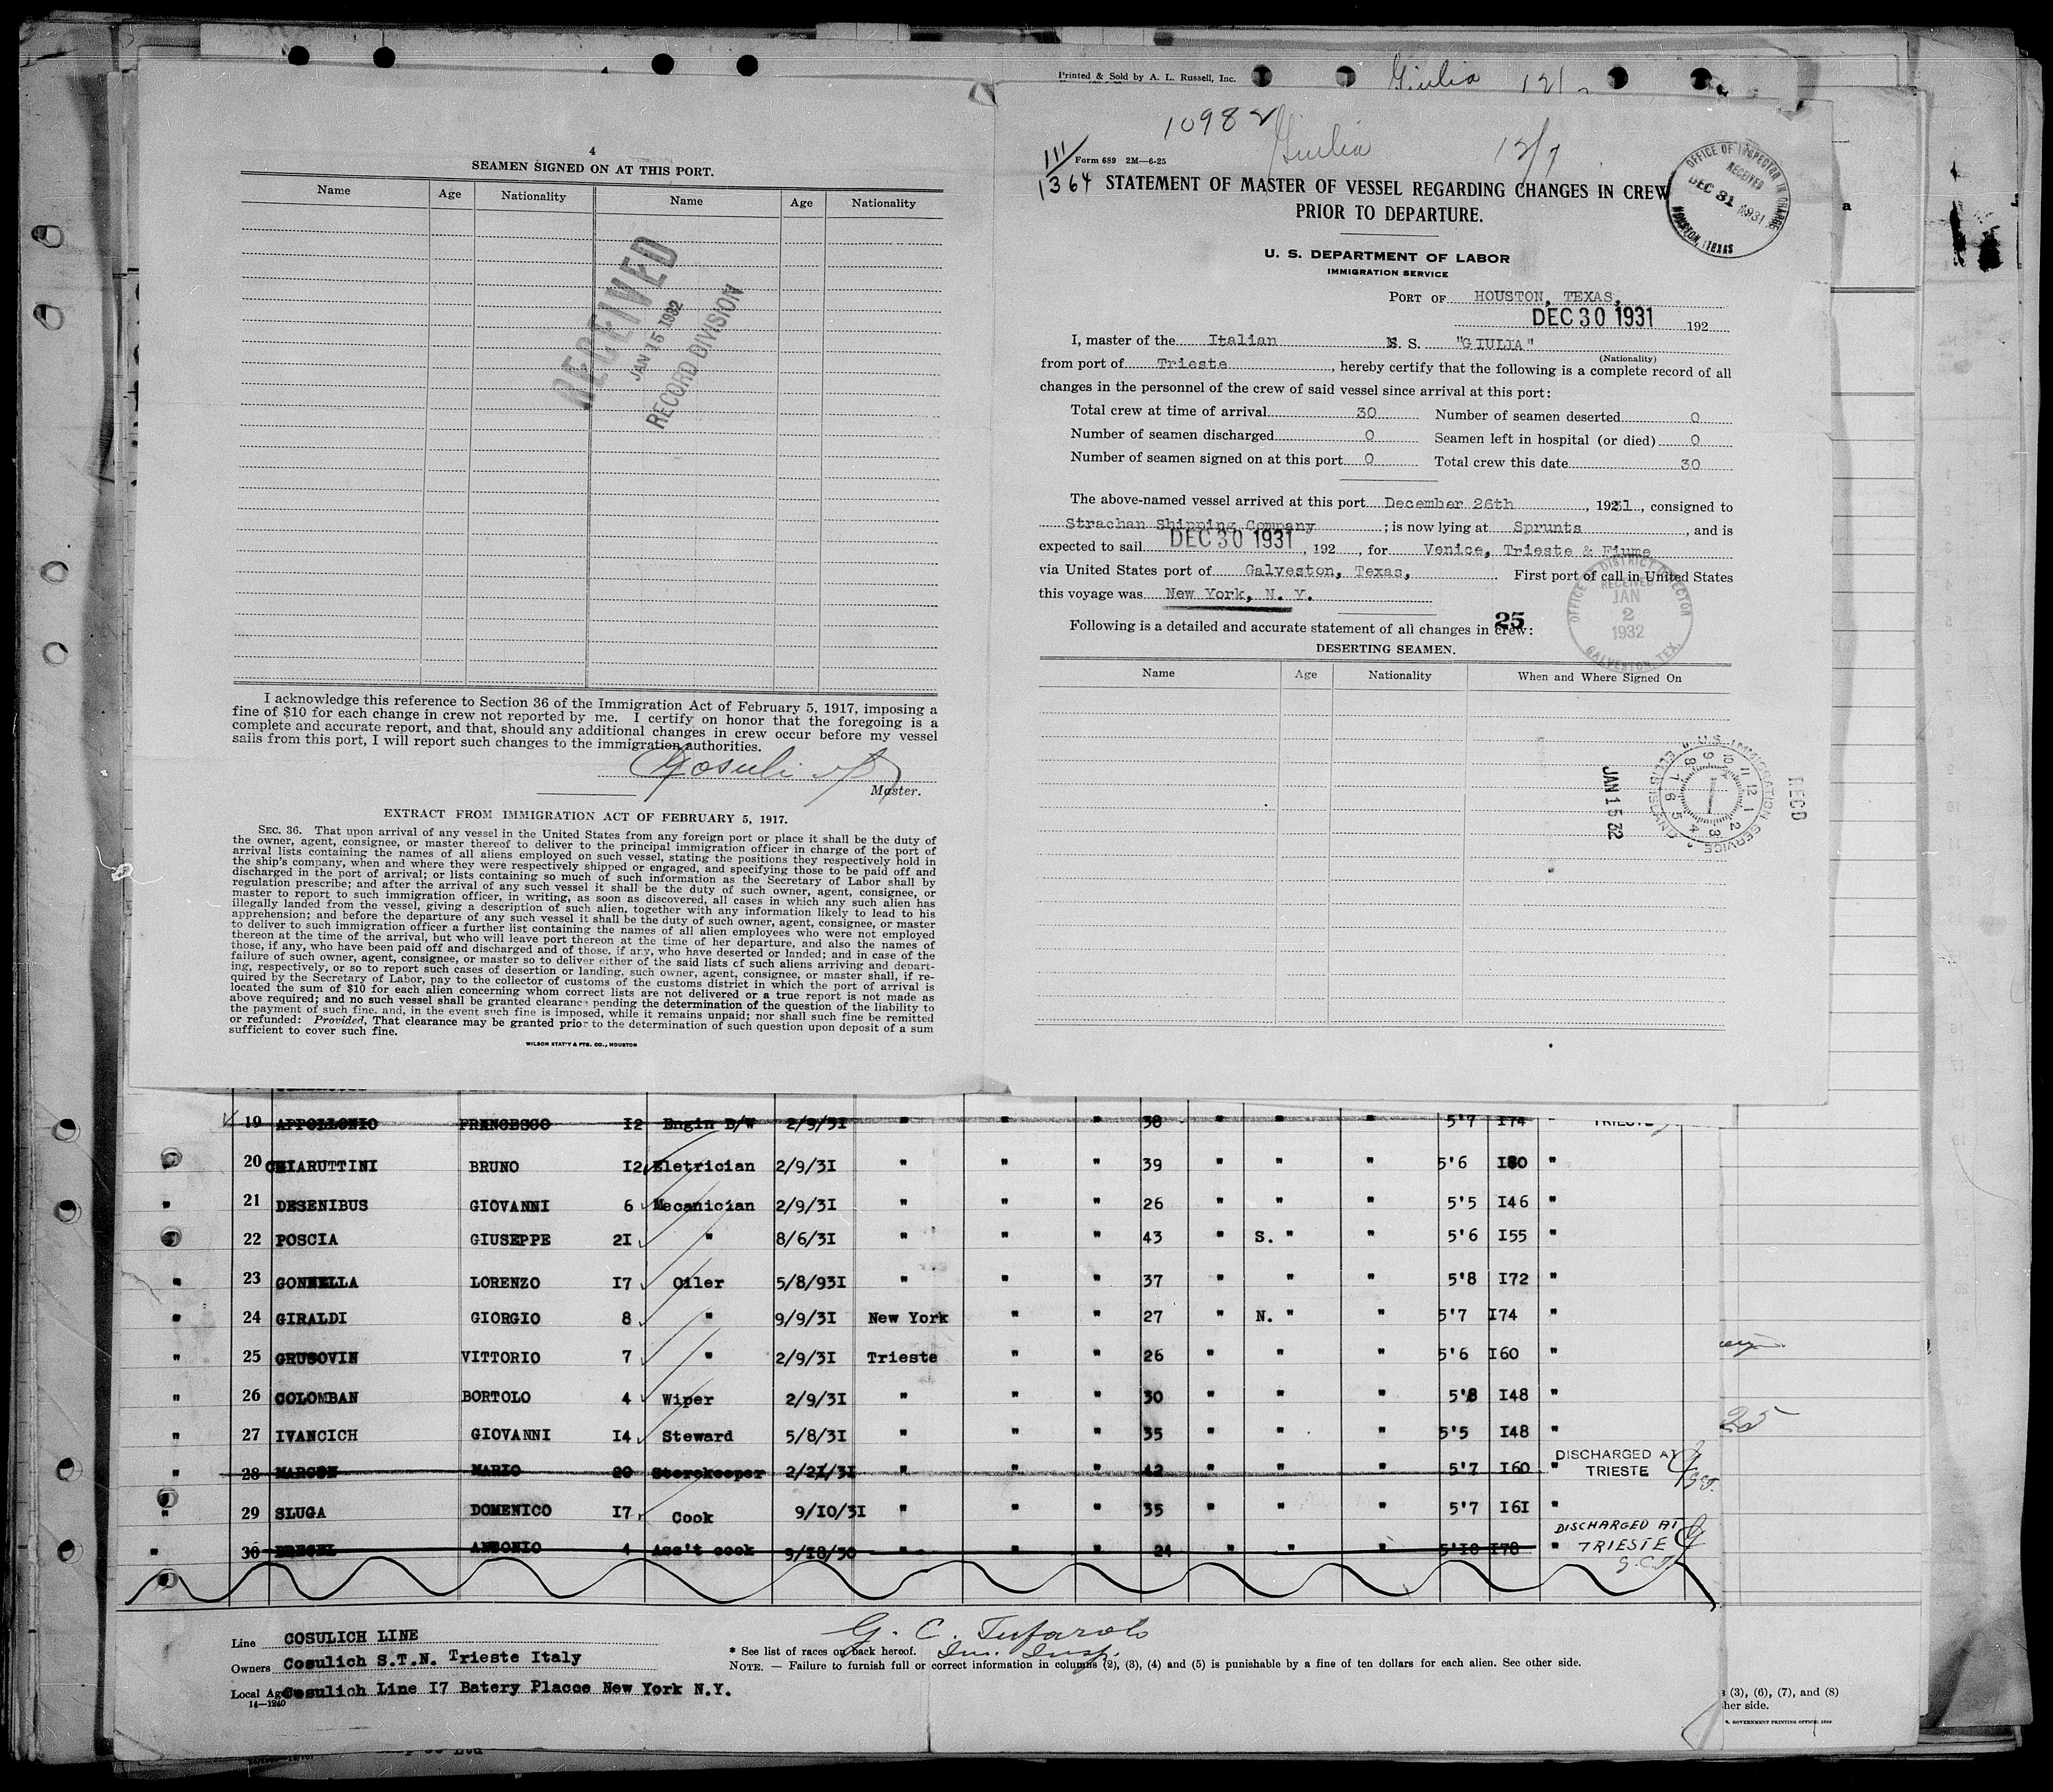 4
SEAMEN SIGNED ON AT THIS PORT.
Name Age Nationality Name Age Nationality
RECEIVED
JAN 15 1932
RECORD DIVISION
I acknowledge this reference to Section 36 of the Immigration Act of February 5, 1917, imposing a
fine of $10 for each change in crew not reported by me. I certify on honor that the foregoing is a
complete and accurate report, and that, should any additional changes in crew occur before my vessel
sails from this port, I will report such changes to the immigration authorities.
Master.
EXTRACT FROM IMMIGRATION ACT OF FEBRUARY 5, 1917.
SEC. 36. That upon arrival of any vessel in the United States from any foreign port or place it shall be the duty of
the owner, agent, consignee, or master thereof to deliver to the principal immigration officer in charge of the port of
arrival lists containing the names of all aliens employed on such vessel, stating the positions they respectively hold in
the ship's company, when and where they were respectively shipped or engaged, and specifying those to be paid off and
discharged in the port of arrival; or lists containing so much of such information as the Secretary of Labor shall by
regulation prescribe; and after the arrival of any such vessel it shall be the duty of such owner, agent, consignee, or
master to report to such immigration officer, in writing, as soon as discovered, all cases in which any such alien has
illegally landed from the vessel, giving a description of such alien, together with any information likely to lead to his
apprehension; and before the departure of any such vessel it shall be the duty of such owner, agent, consignee, or master
to deliver to such immigration officer a further list containing the names of all alien employees who were not employed
thereon at the time of the arrival, but who will leave port thereon at the time of her departure, and also the names of
those, if any, who have been paid off and discharged and of those, if any, who have deserted or landed; and in case of the
failure of such owner, agent, consignee, or master so to deliver either of the said lists of such aliens arriving and depart-
ing, respectively, or so to report such cases of desertion or landing, such owner, agent, consignee, or master shall, if re-
quired by the Secretary of Labor, pay to the collector of customs of the customs district in which the port of arrival is
located the sum of $10 for each alien concerning whom correct lists are not delivered or a true report is not made as
above required; and no such vessel shall be granted clearance pending the determination of the question of the liability to
the payment of such fine, and, in the event such fine is imposed, while it remains unpaid; nor shall such fine be remitted
or refunded: Provided, That clearance may be granted prior to the determination of such question upon deposit of a sum
sufficient to cover such fine.
WILSON STAT'Y & PTG. CO., HOUSTON
Printed & Sold by A. L. Russell, Inc.
Giulia 121
10982
Giulia 12/7
111/
1364
Form 689 2M—6-25
STATEMENT OF MASTER OF VESSEL REGARDING CHANGES IN CREW
PRIOR TO DEPARTURE.
OFFICE OF INSPECTOR IN CHARGE
RECEIVED
DEC 31 1931
HOUSTON, TEXAS
U. S. DEPARTMENT OF LABOR
IMMIGRATION SERVICE
PORT OF HOUSTON, TEXAS,
DEC 30 1931 192
I, master of the Italian S. S. "GIULIA"
(Nationality)
from port of Trieste, hereby certify that the following is a complete record of all
changes in the personnel of the crew of said vessel since arrival at this port:
Total crew at time of arrival 30 Number of seamen deserted 0
Number of seamen discharged 0 Seamen left in hospital (or died) 0
Number of seamen signed on at this port 0 Total crew this date 30
The above-named vessel arrived at this port December 26th, 1931, consigned to
Strachan Shipping Company; is now lying at Sprunts, and is
expected to sail DEC 30 1931, 192, for Venice, Trieste & Fiume
via United States port of Galveston, Texas, First port of call in United States
this voyage was New York, N. Y.
OFFICE OF DISTRICT DIRECTOR
RECEIVED
JAN
2
1932
GALVESTON, TEX.
25
Following is a detailed and accurate statement of all changes in crew:
DESERTING SEAMEN.
Name Age Nationality When and Where Signed On
U.S. IMMIGRATION SERVICE ELLIS ISLAND
JAN 15 32
RECD
19 APPOLLONIO FRANCESCO 12 Engin D/W 2/9/31 " " " 38 " " " 5'7 174 " TRIESTE
20 CHIARUTTINI BRUNO 12 Eletrician 2/9/31 " " " 39 " " " 5'6 180 "
21 DESENIBUS GIOVANNI 6 Mecanician 2/9/31 " " " 26 " " " 5'5 146 "
22 POSCIA GIUSEPPE 21 " 8/6/31 " " " 43 " S. " " 5'6 155 "
23 GONNELLA LORENZO 17 Oiler 5/8/931 " " " 37 " " " 5'8 172 "
24 GIRALDI GIORGIO 8 " 9/9/31 New York " " 27 " N. " " 5'7 174 "
25 GRUSOVIN VITTORIO 7 " 2/9/31 Trieste " " 26 " " " 5'6 160 "
26 COLOMBAN BORTOLO 4 Wiper 2/9/31 " " " 30 " " " 5'8 148 "
27 IVANCICH GIOVANNI 14 Steward 5/8/31 " " " 35 " " " 5'5 148 "
28 MARCON MARIO 20 Storekeeper 2/21/31 " " " 42 " " " 5'7 160 " DISCHARGED AT TRIESTE
29 SLUGA DOMENICO 17 Cook 9/10/31 " " " 35 " " " 5'7 161 "
30 ANTONIO 4 Ass't cook 9/18/30 " " " 24 " " " 5'10 178 " DISCHARGED AT TRIESTE G.C.T.
25
Line COSULICH LINE
Owners Cosulich S.T.N. Trieste Italy
Local Agents Cosulich Line 17 Batery Placce New York N.Y.
14—1240
G. C. Tufarolo
Im. Insp.
* See list of races on back hereof.
NOTE. — Failure to furnish full or correct information in columns (2), (3), (4) and (5) is punishable by a fine of ten dollars for each alien. See other side.
(3), (6), (7), and (8)
her side.
GOVERNMENT PRINTING OFFICE: 1930